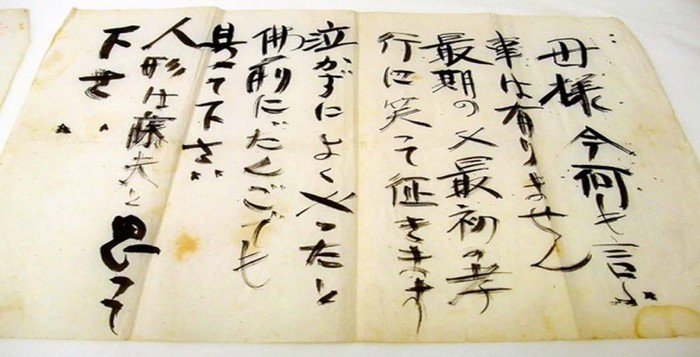 母様今何も言ふ
事は有りません
最期の又最初の孝
行に笑って征きます
泣かずによくやったと
佛前にだんごでも
具へて下さい
人形は藤夫と思って
下さい